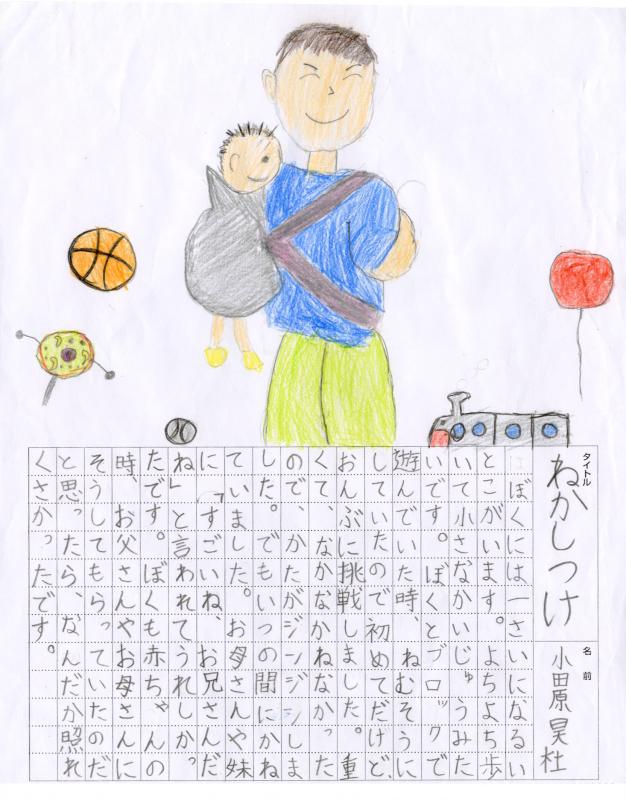 タイトル
ねかしつけ
名前
小田原昊杜
ぼくには一さいになるい
とこがいます。よちよち歩
いて小さなかいじゅうみた
いです。ぼくとブロックで
遊んでいた時、ねむそうに
していたので初めてだけど、
おんぶに挑戦しました。重
くて、なかなかねなかった
ので、かたがジンジンしま
した。でもいつの間にかね
ていました。お母さんや妹
に「すごいね、お兄さんだ
ね」と言われてうれしかっ
たです。ぼくも赤ちゃんの
時、お父さんやお母さんに
そうしてもらっていたのだ
と思ったら、なんだか照れ
くさかったです。